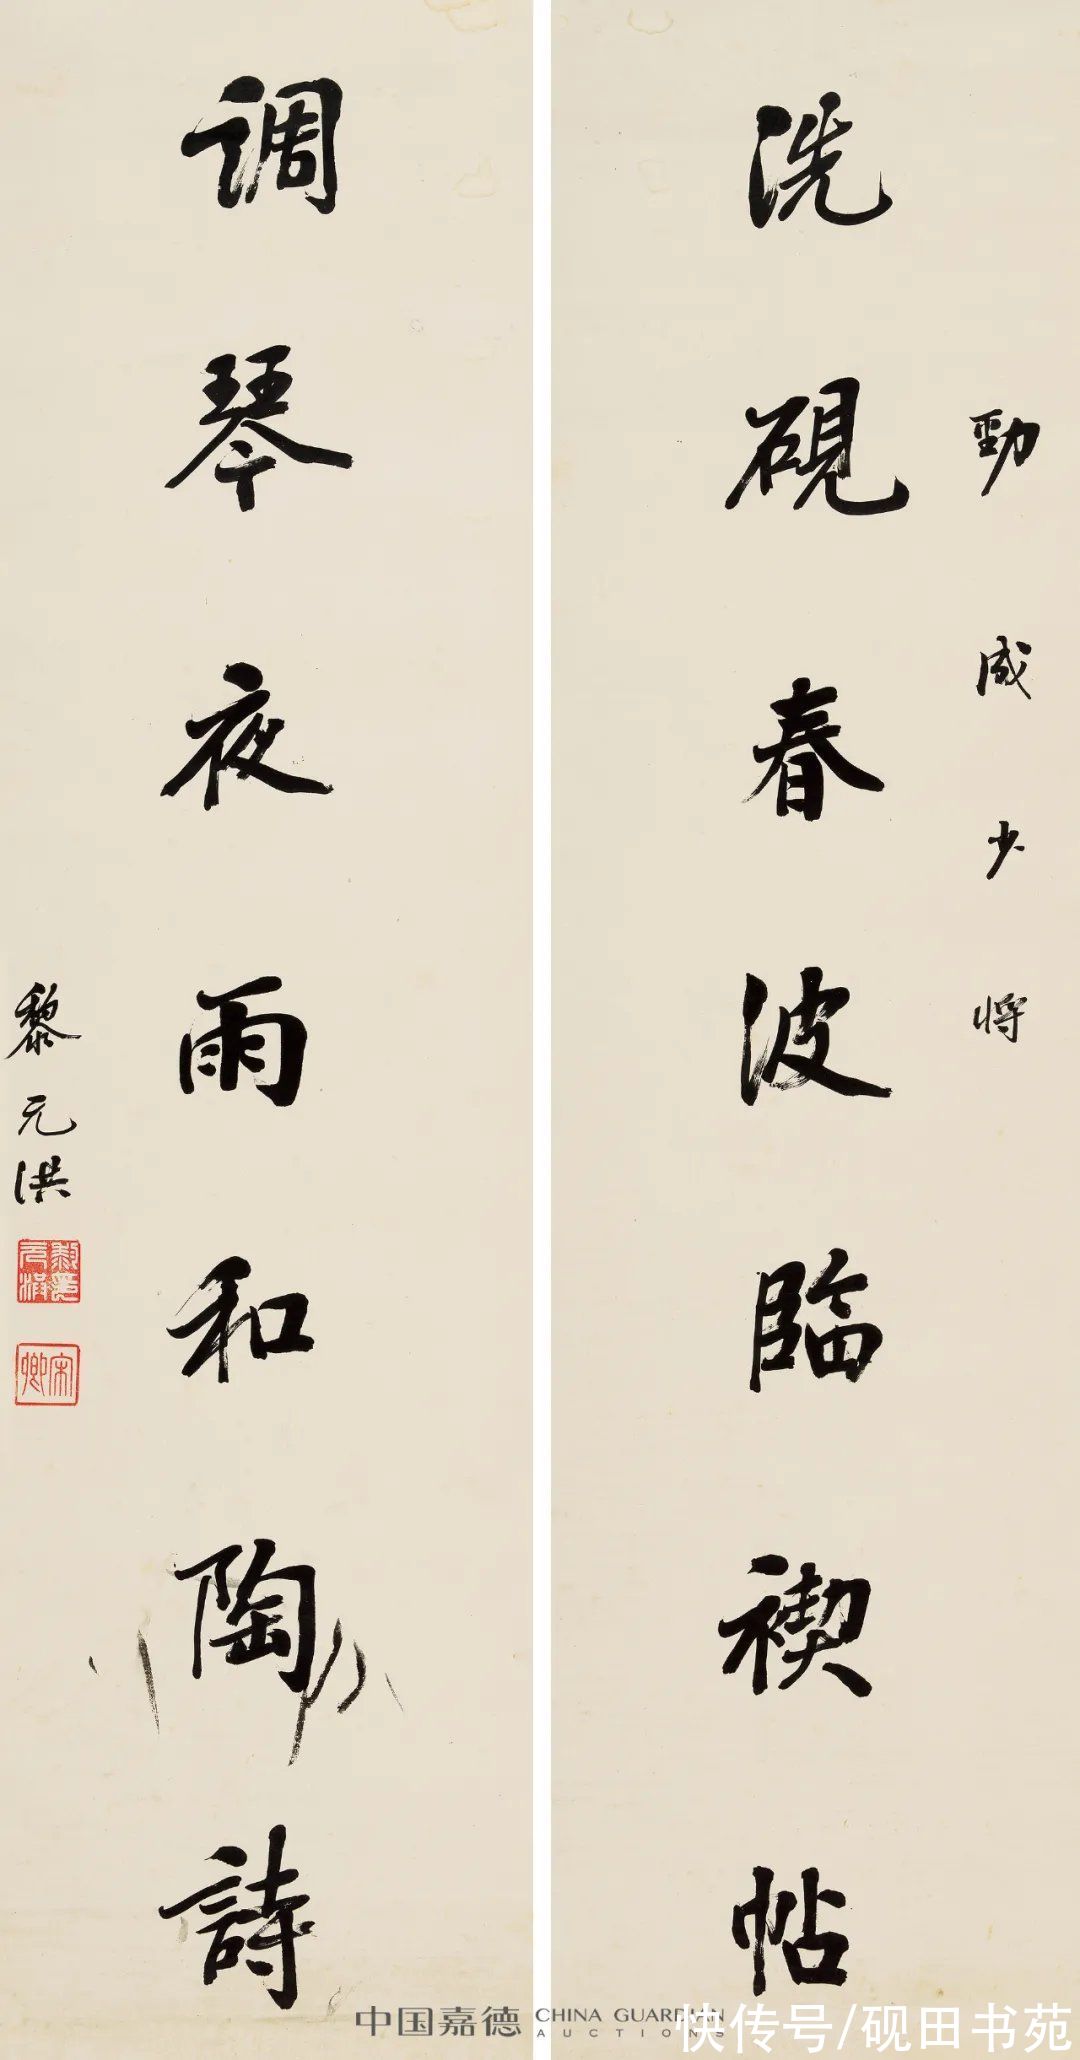 勁威少将
洗硯春波臨禊帖
调琴夜雨和陶詩
黎元洪
黎元洪
宋卿
中国嘉德 CHINA GUARDIAN AUCTIONS
快传号/砚田书苑